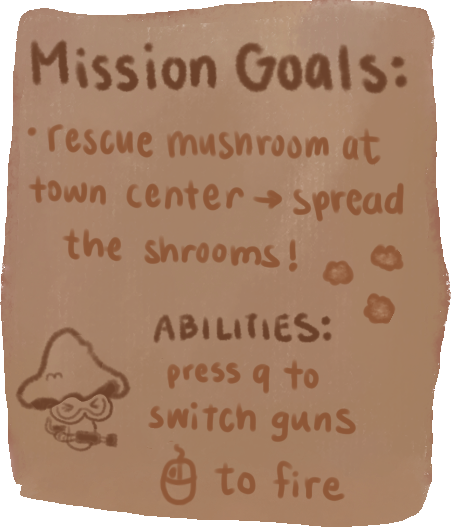 Mission Goals:
• rescue mushroom at
town center → spread
the shrooms!
ABILITIES:
press q to
switch guns
to fire